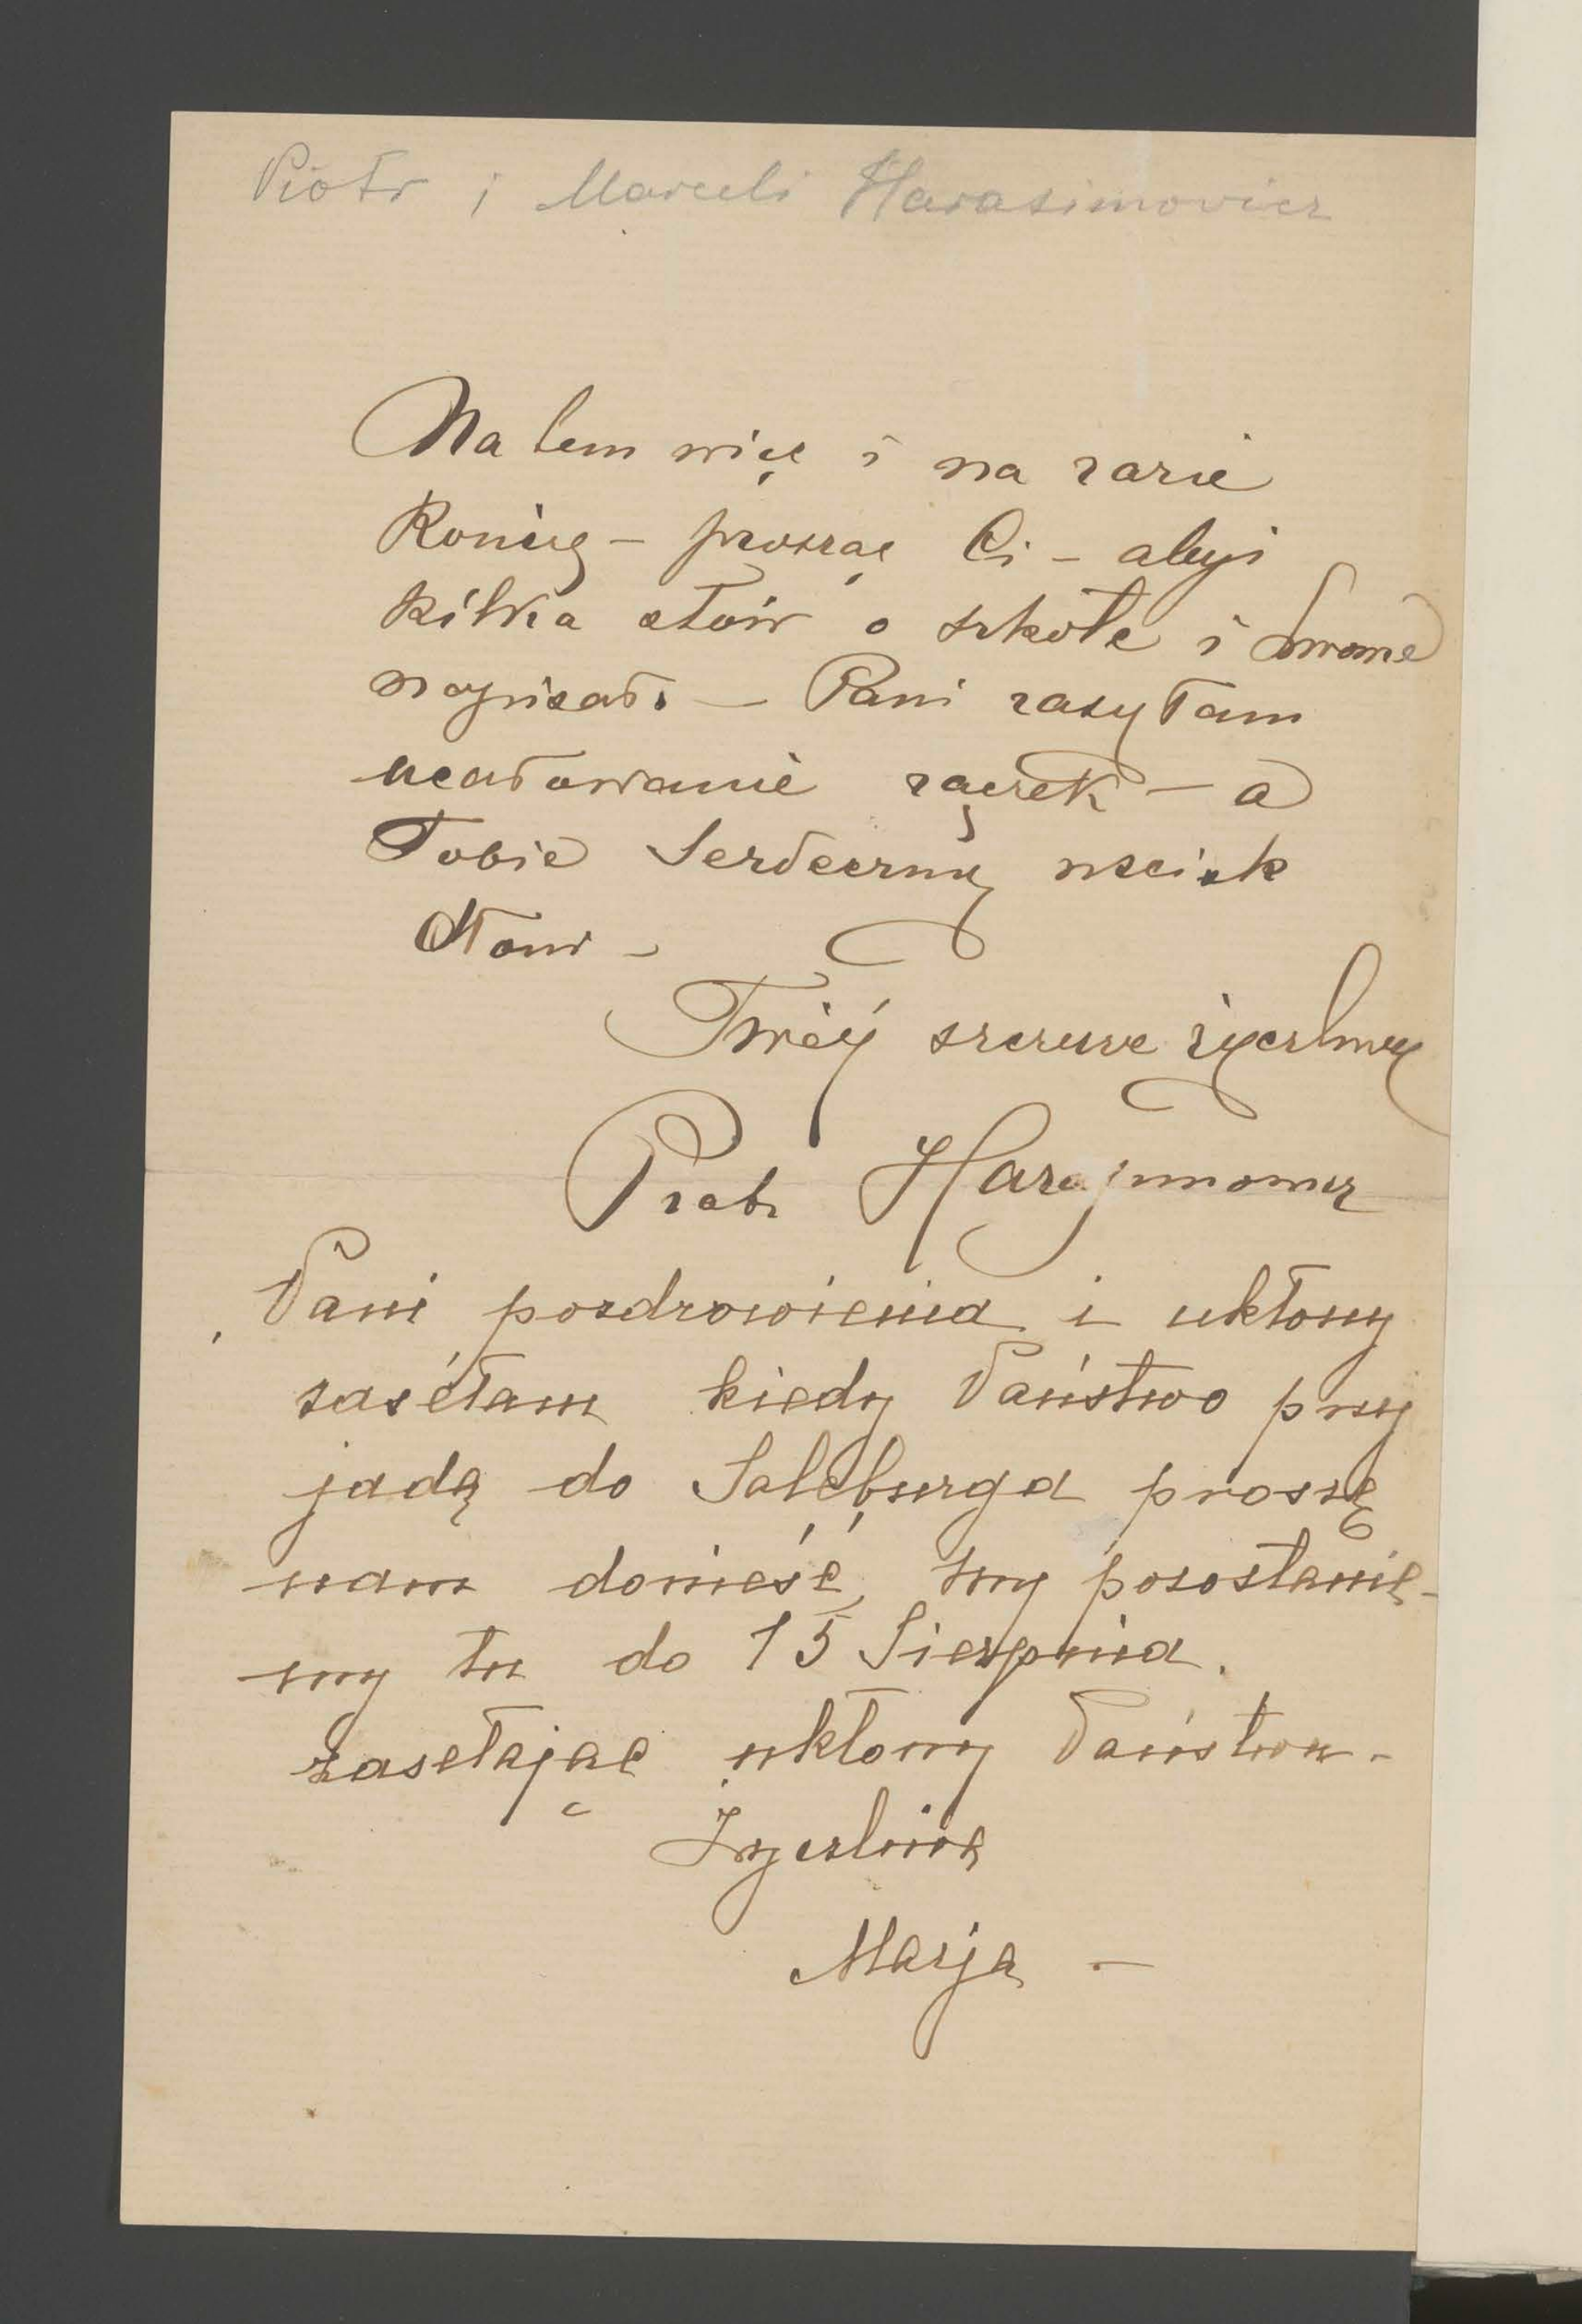 Piotr i Marceli Harasimowicz
Na tem więc i na razie
Kończę – prosząc Ci – abyś
kilka słów o szkole i Lwowie
napisał. – Pani zasyłam
ucałowanie rączek – a
Tobie Serdeczny uścisk
dłoni –
Twój szczerze życzliwy
Piotr Harasimowicz
Pani pozdrowienia i ukłony
zasełam kiedy Państwo przy
jadą do Salcburga proszę
nam donieść, my pozostanie-
my tu do 15 Sierpnia.
zasełając ukłony Państwu –
Życzliwa
Marja –